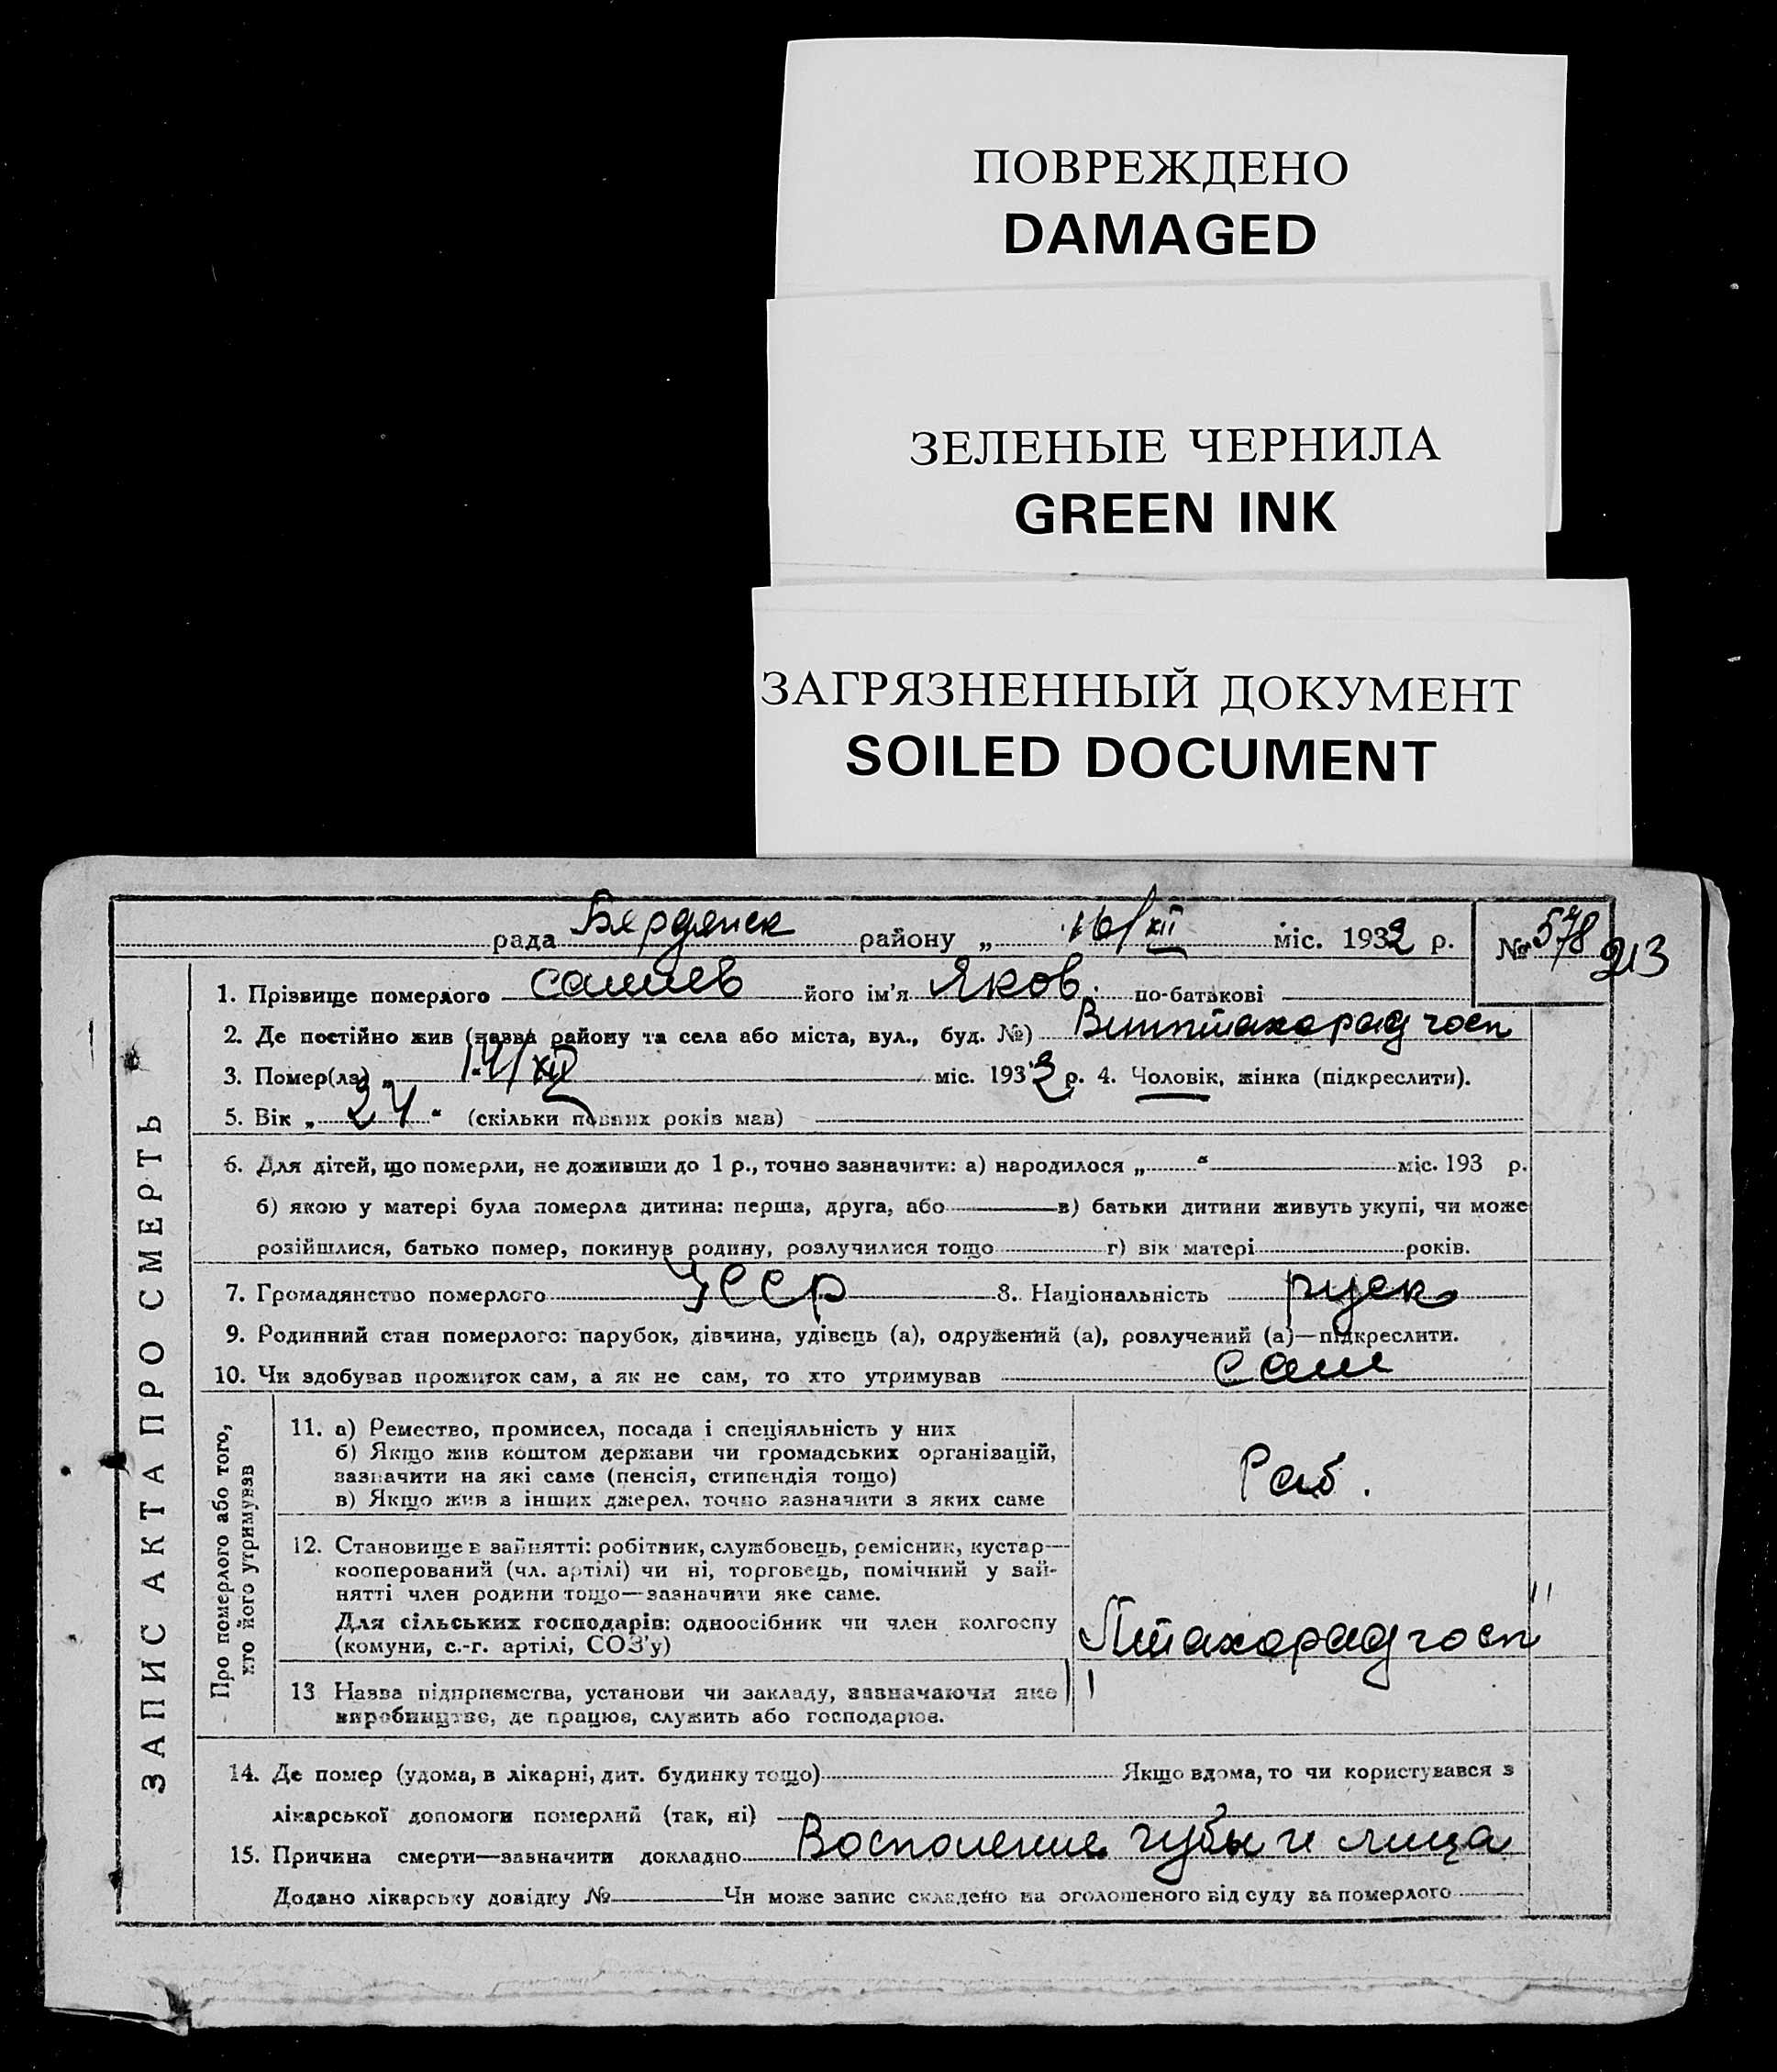 ПОВРЕЖДЕНО
DAMAGED
ЗЕЛЕНЫЕ ЧЕРНИЛА
GREEN INK
ЗАГРЯЗНЕННЫЙ ДОКУМЕНТ
SOILED DOCUMENT
рада Бердянск району „ 16/XII міс. 1932 р. № 578
213
1. Прізвище померлого його ім'я Яков. по-батькові
2. Де постійно жив (назва району та села або міста, вул., буд. №)
3. Помер(ла) „ 14/XII міс. 1932 р. 4. Чоловік, жінка (підкреслити).
5. Вік „ 24 “ (скільки повних років мав)
6. Для дітей, що померли, не доживши до 1 р., точно зазначити: а) народилося „ “ міс. 193 р.
б) якою у матері була померла дитина: перша, друга, або в) батьки дитини живуть укупі, чи може
розійшлися, батько помер, покинув родину, розлучилися тощо г) вік матері років.
7. Громадянство померлого УССР 8. Національність руск
9. Родинний стан померлого: парубок, дівчина, удівець (а), одружений (а), розлучений (а)—підкреслити.
10. Чи здобував прожиток сам, а як не сам, то хто утримував сам
ЗАПИС АКТА ПРО СМЕРТЬ
Про померлого або того,
хто його утримував
11. а) Ремество, промисел, посада і спеціяльність у них
б) Якщо жив коштом держави чи громадських організацій,
зазначити на які саме (пенсія, стипендія тощо)
в) Якщо жив з інших джерел, точно зазначити з яких саме
Раб.
12. Становище в зайнятті: робітник, службовець, ремісник, кустар—
кооперований (чл. артілі) чи ні, торговець, помічний у зай-
нятті член родини тощо—зазначити яке саме.
Для сільських господарів: одноосібник чи член колгоспу
(комуни, с.-г. артілі, СОЗ'у)
Птахорадгосп
13 Назва підприємства, установи чи закладу, зазначаючи яке
виробництво, де працює, служить або господарює.
14. Де помер (удома, в лікарні, дит. будинку тощо) Якщо вдома, то чи користувався з
лікарської допомоги померлий (так, ні)
15. Причина смерти—зазначити докладно Восполение губы и лица
Додано лікарську довідку № Чи може запис складено на оголошеного від суду за померлого